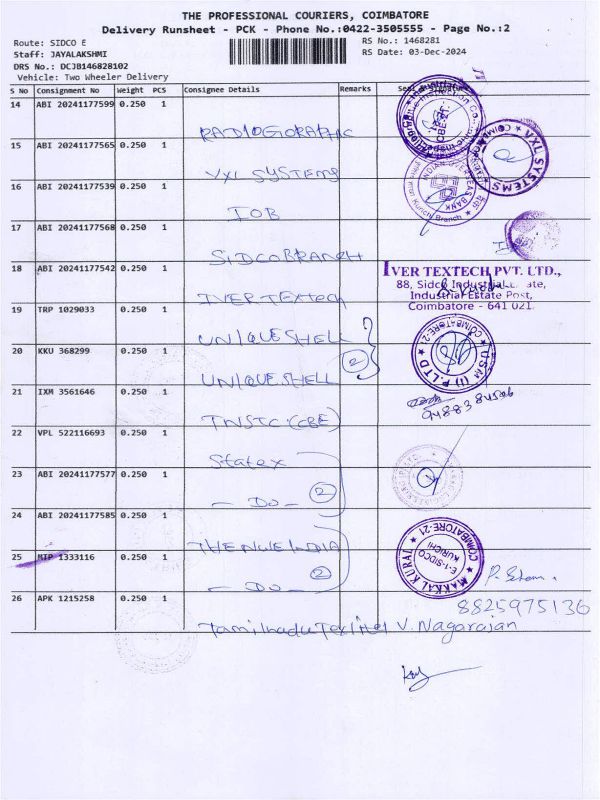 THE PROFESSIONAL COURIERS, COIMBATORE
Delivery Runsheet - PCK - Phone No.:0422-3505555 - Page No.:2
Route: SIDCO E
RS No.: 1468281
Staff: JAYALAKSHMI
RS Date: 03-Dec-2024
DRS No.: DCJB146828102
Vehicle: Two Wheeler Delivery
S No Consignment No Weight PCS Consignee Details Remarks
14 ABI 20241177599 0.250 1
RADIOGRAPHIC
15 ABI 20241177565 0.250 1
VXL SYSTEMS
VXL SYSTEMS
16 ABI 20241177539 0.250 1
IOB
INDIAN OVERSEAS BANK
Kurichi Branch
17 ABI 20241177568 0.250 1
SIDCO BRANCH
18 ABI 20241177542 0.250 1
IVER TEXtech
IVER TEXTECH PVT. LTD.,
88, Sidco Industrial Estate,
Industrial Estate Post,
Coimbatore - 641 021.
19 TRP 1029033 0.250 1
UNIQUE SHELL
20 KKU 368299 0.250 1
UNIQUE SHELL
2
USM (I) P.LTD
COIMBATORE-21
21 IXM 3561646 0.250 1
TNSTC (CBE)
22 VPL 522116693 0.250 1
Statex
23 ABI 20241177577 0.250 1
- Do - 2
24 ABI 20241177585 0.250 1
THE NWE INDIA
25 MTP 1333116 0.250 1
- Do - 2
MAKKAL KURAL
E-1-SIDCO
KURICHI
COIMBATORE-21
26 APK 1215258 0.250 1
8825975136
Tamilnadu Textitel V. Nagarajan